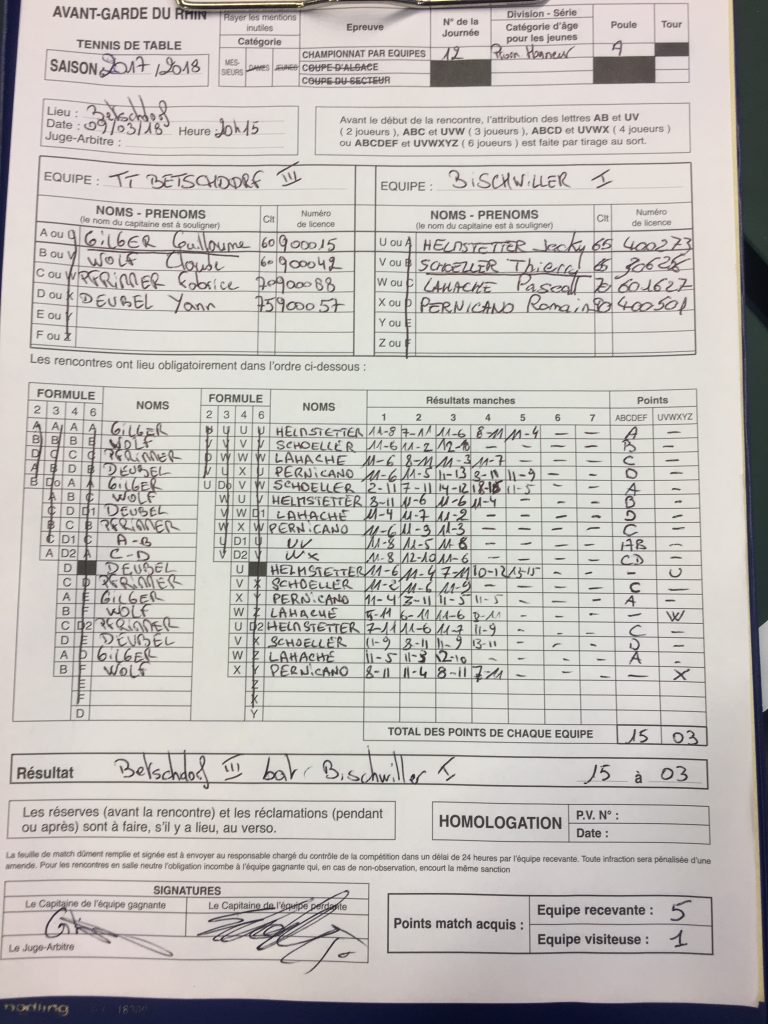 AVANT-GARDE DU RHIN
TENNIS DE TABLE
SAISON 2017/2018
Rayer les mentions inutiles
Catégorie
MES-SIEURS DAMES JEUNES
Epreuve
CHAMPIONNAT PAR EQUIPES
COUPE D'ALSACE
COUPE DU SECTEUR
N° de la Journée
12
Division - Série
Catégorie d'âge pour les jeunes
Honneur
Poule
A
Tour
Lieu : Betschdorf
Date : 09/03/18 Heure : 20h15
Juge-Arbitre :
Avant le début de la rencontre, l'attribution des lettres AB et UV
( 2 joueurs ), ABC et UVW ( 3 joueurs ), ABCD et UVWX ( 4 joueurs )
ou ABCDEF et UVWXYZ ( 6 joueurs ) est faite par tirage au sort.
EQUIPE : TT BETSCHDORF III
EQUIPE : BISCHWILLER I
NOMS - PRENOMS (le nom du capitaine est à souligner) Clt Numéro de licence
A ou U GILGER Guillaume 60 900015
B ou V WOLF Claude 60 900042
C ou W PFRIMMER Fabrice 70 900088
D ou X DEUBEL Yann 75 900057
E ou Y
F ou Z
NOMS - PRENOMS (le nom du capitaine est à souligner) Clt Numéro de licence
U ou A HELMSTETTER Jacky 65 400273
V ou B SCHOELLER Thierry 65 30625
W ou C LAHACHE Pascal 70 601627
X ou D PERNICANO Romain 80 400501
Y ou E
Z ou F
Les rencontres ont lieu obligatoirement dans l'ordre ci-dessous :
FORMULE NOMS FORMULE NOMS Résultats manches Points
2 3 4 6 2 3 4 6 1 2 3 4 5 6 7 ABCDEF UVWXYZ
GILGER HELMSTETTER 11-8 7-11 11-6 8-11 11-4 - - A -
WOLF SCHOELLER 11-6 11-2 12-10 - - - - B -
PFRIMMER LAHACHE 11-6 8-11 11-3 11-7 - - - C -
DEUBEL PERNICANO 11-6 11-5 11-13 8-11 11-9 - - D -
GILGER SCHOELLER 2-11 7-11 14-12 11-5 - - A -
WOLF HELMSTETTER 8-11 11-6 11-6 11-4 - - - B -
DEUBEL LAHACHE 11-4 11-7 11-2 - - - - D -
PFRIMMER PERNICANO 11-6 11-9 11-3 - - - - C -
A-B UV 11-8 11-5 11-8 - - - -
C-D WX 11-8 12-10 11-6 - - - - CD -
DEUBEL HELMSTETTER 11-6 11-4 7-11 10-12 13-15 - - - U
PFRIMMER SCHOELLER 11-2 11-6 11-9 - - - - C -
GILGER PERNICANO 11-4 11-5 11-5 - - - A -
WOLF LAHACHE 6-11 11-6 - - - - W
PFRIMMER HELMSTETTER 7-11 11-6 11-7 11-9 - - - C -
DEUBEL SCHOELLER 11-9 11-9 13-11 - - - D -
GILGER LAHACHE 11-5 11-3 12-10 - - - - A -
WOLF PERNICANO 8-11 11-4 8-11 7-11 - - - - X
TOTAL DES POINTS DE CHAQUE EQUIPE 15 03
Résultat Betschdorf III bat Bischwiller I 15 à 03
Les réserves (avant la rencontre) et les réclamations (pendant
ou après) sont à faire, s'il y a lieu, au verso.
HOMOLOGATION
P.V. N° :
Date :
La feuille de match dûment remplie et signée est à envoyer au responsable chargé du contrôle de la compétition dans un délai de 24 heures par l'équipe recevante. Toute infraction sera pénalisée d'une
amende. Pour les rencontres en salle neutre l'obligation incombe à l'équipe gagnante qui, en cas de non-observation, encourt la même sanction
SIGNATURES
Le Capitaine de l'équipe gagnante
Le Capitaine de l'équipe perdante
Le Juge-Arbitre
Points match acquis :
Equipe recevante : 5
Equipe visiteuse : 1